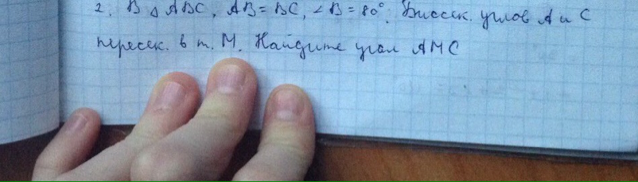 2. В △ ABC, AB = BC, ∠B = 80°. Биссек. углов A и C
пересек. в т. M. Найдите угол AMC